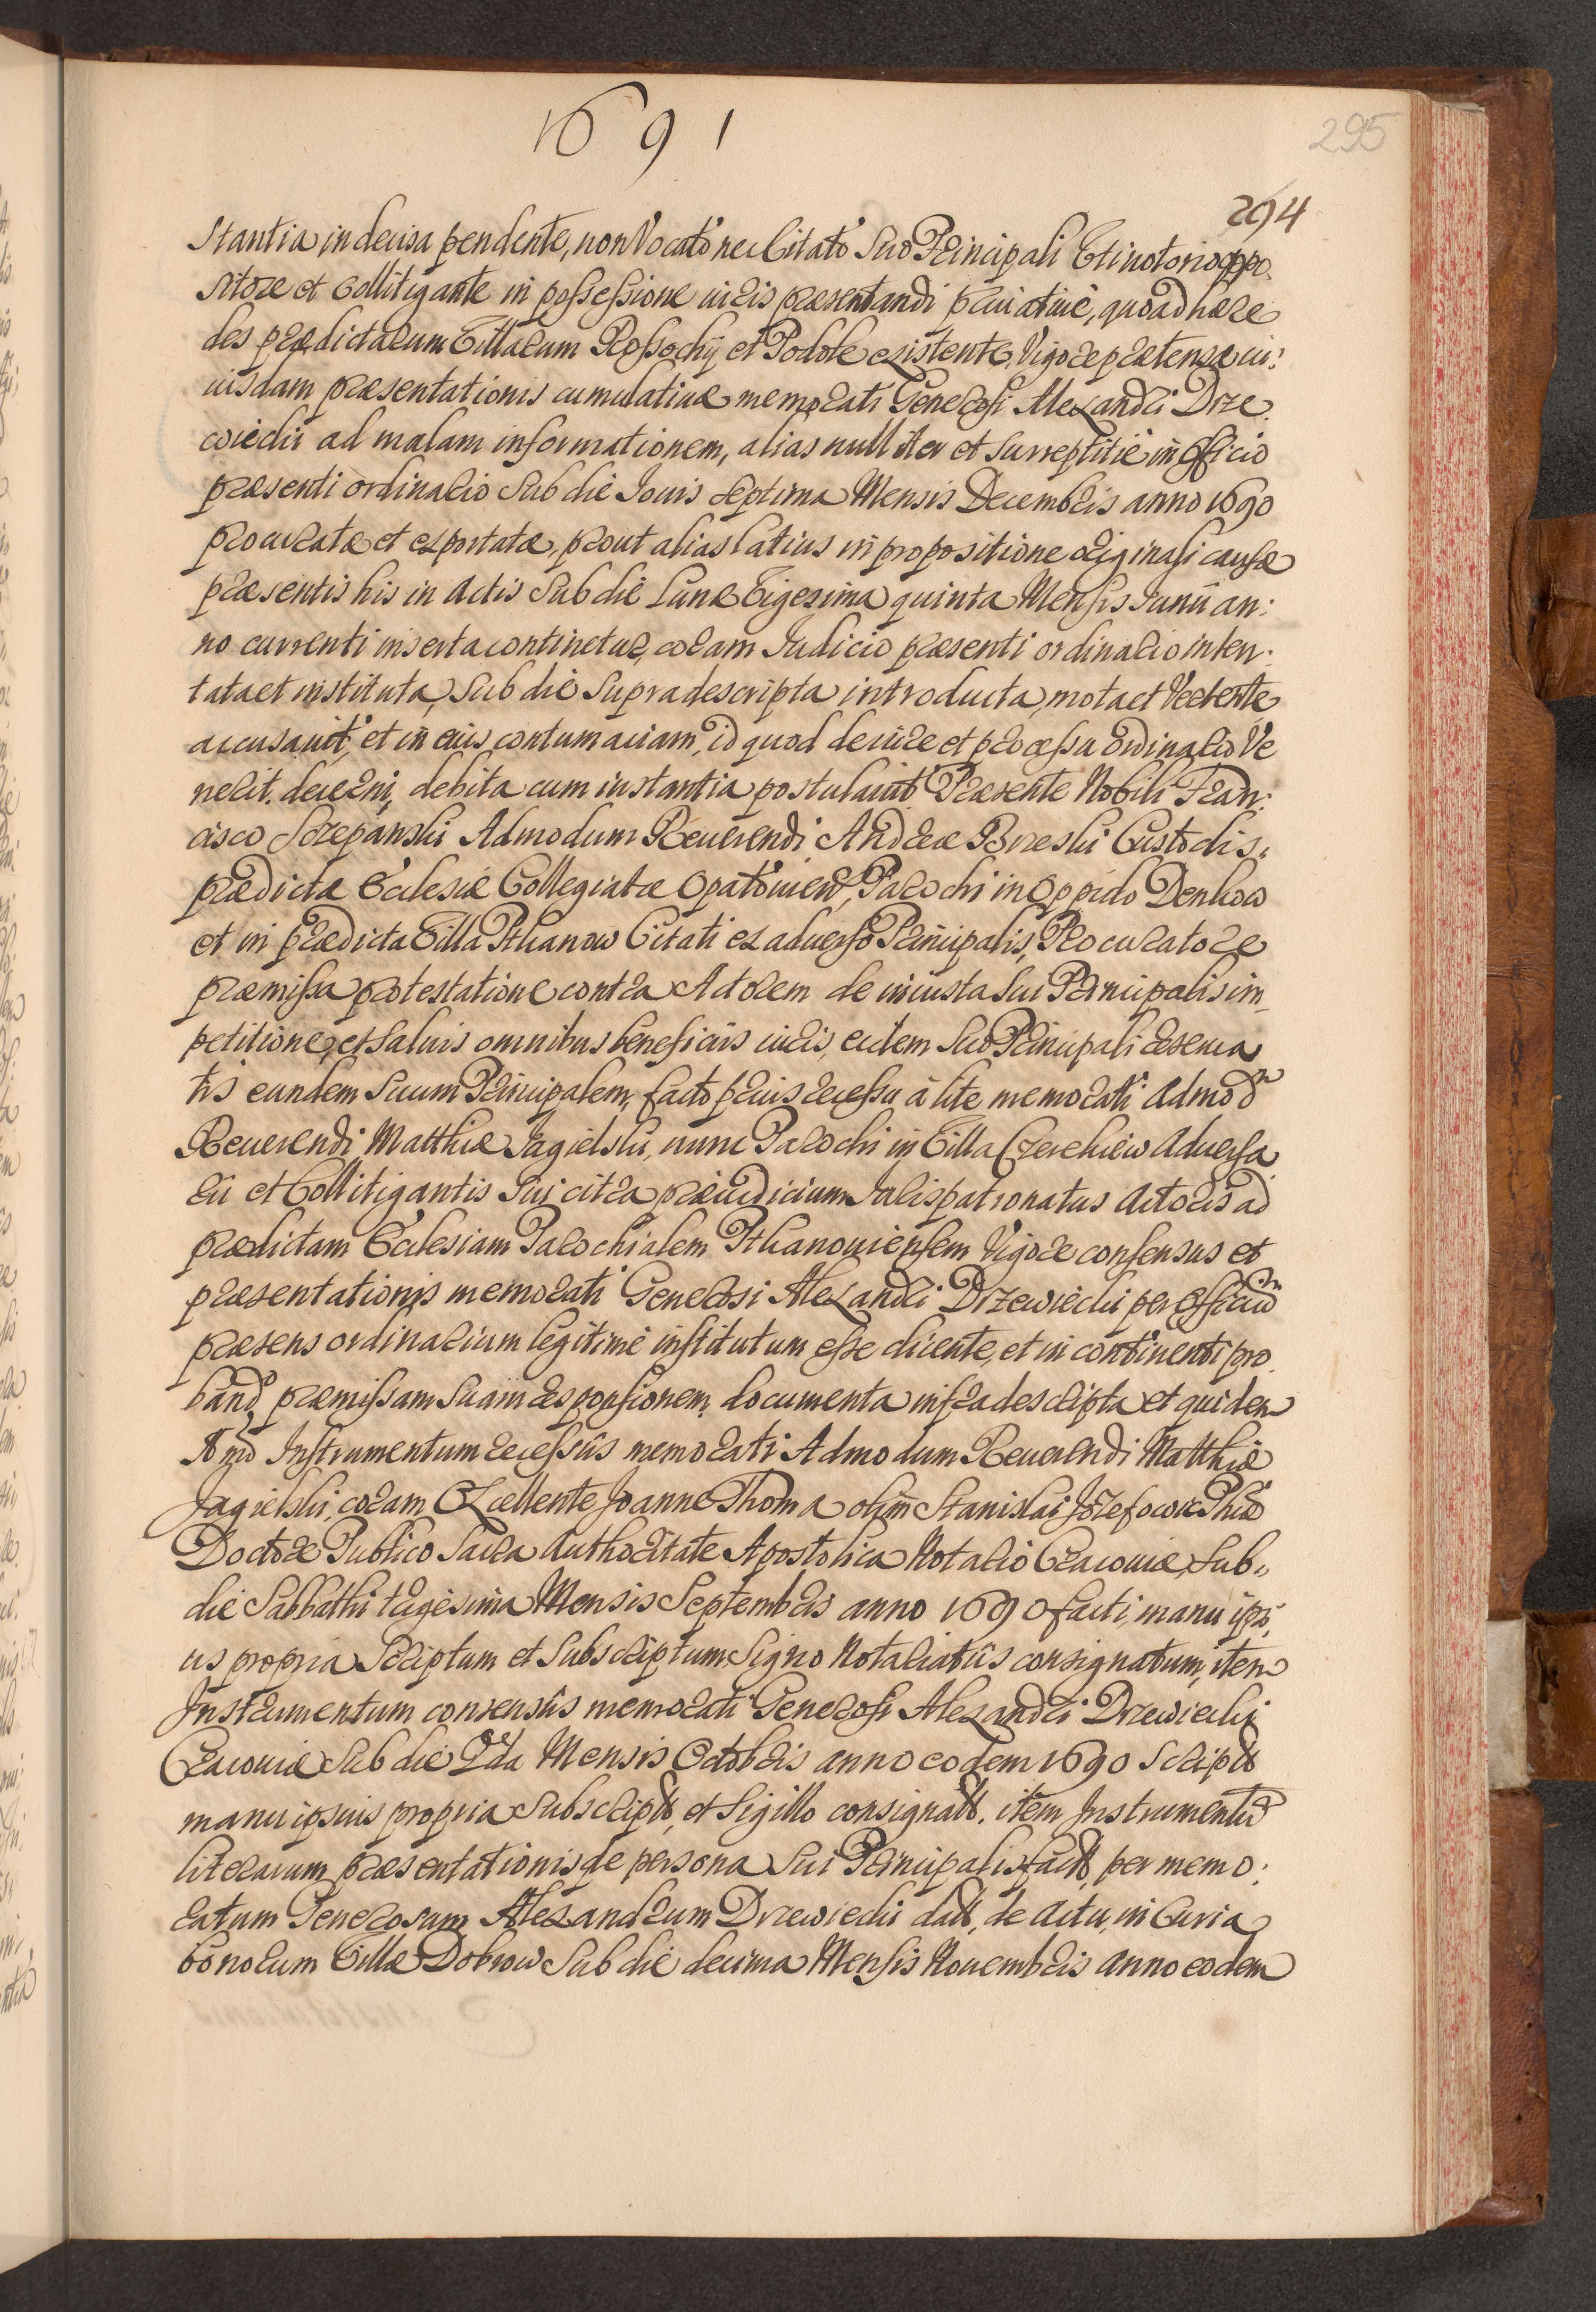 1691
295
294
stantia indecisa pendente, non Vocato nec Citato Suo Principali Eti notorio oppo.
sitore et Collitigante in possessione iuris præsentandi privative, quoad hære
des prædictarum Villarum Rossochy et Podole existente, Vigore prætensæ cu:
iusdam præsentationis cumulativæ memorati Generosi Alexandri Drze.
wiecki ad malam informationem, alias nulliter et surreptitie in Officio
præsenti ordinario sub die Jovis septima Mensis Decembris anno 1690
procuratæ et exportatæ, prout alias latius in propositione originali causæ
præsentis his in Actis sub die Lunæ Vigesima quinta Mensis Junii an:
no currenti inserta continetur, coram Iudicio præsenti ordinario inten:
tata et instituta, sub die supradescripta introducta, mota et Vertente
accusavit, et in eius contumaciam, id quod de iure et processu ordinario Ve
nerit. decerni, debita cum instantia postulavit Præsente Nobili Fran:
cisco Szczepanski Admodum Reverendi Andreæ Brzeski Custodis.
prædictæ Ecclesiæ Collegiatæ Opatovien, Parochi in Oppido Denkow
et in prædicta Villa Ptkanow Citati ex adverso Principalis, Procuratore
præmissa protestatione contra Actorem de iniusta sui Principalis im
petitione, et salvis omnibus beneficiis iuris, eidem Suo Principali reserva
tis eundem Suum Principalem, facto prius recessu à lite memorati Admod
Reverendi Matthiæ Jagielski, nunc Parochi in Villa Czerekiew Adversa
rii et Collitigantis Sui citra præiudicium Jurispatronatus Actoris ad
prædictam Ecclesiam Parochialem Ptkanoviensem Vigore consensus et
præsentationis memorati Generosi Alexandri Drzewiecki per Officium
præsens ordinarium legitime institutum esse dicente, et in continenti pro
band præmissam Suam responsionem, documenta infradescripta et quidem
Imo Instrumentum recessus memorati Admodum Reverendi Matthiæ
Jagielski, coram Excellente Joanne Thoma olim Stanislai Józefowic Phiæ
Doctore Publico Sacra Authoritate Apostolica Notario Cracoviæ, sub
die Sabbathi trigesima Mensis Septembris anno 1690 facti, manu ipsi,
us propria Scriptum et Subscriptum, Signo Notariatus consignatum, item
Instrumentum consensus memorati Generosi Alexandri Drzewiecki
Cracoviæ sub die 2da Mensis Octobris anno eodem 1690 Script
manu ipsius propria subscript, et Sigillo consignatt. item Instrumentum
literarum præsentationis de persona Sui Principalis factt, per memo:
ratum Generosum Alexandrum Drzewiecki datt, de actu, in Curia
bonorum Villæ Dobrow sub die decima Mensis Novembris anno eodem